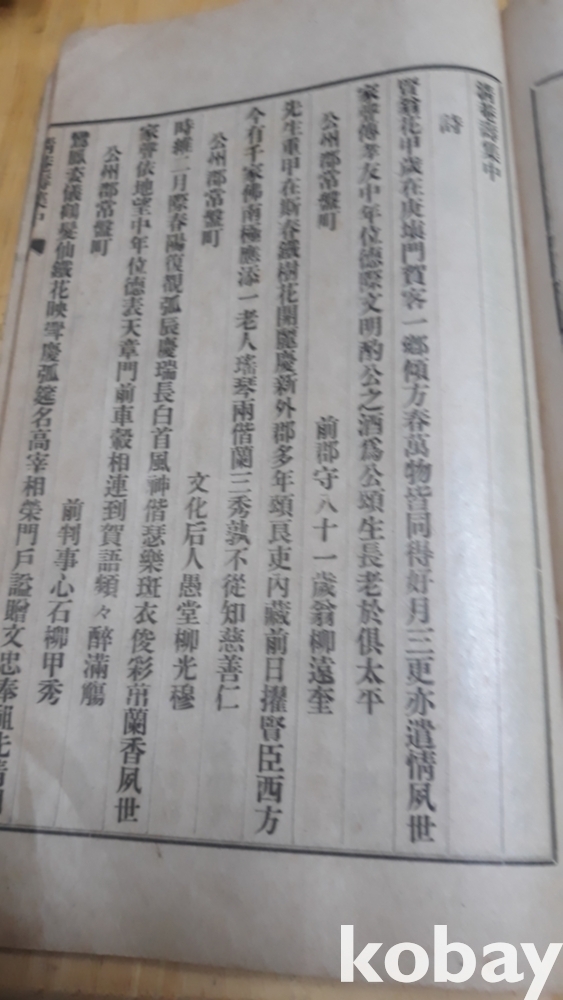 壽集中
詩
賢翁花甲歲在庚壤門賀客一鄉傾方春萬物皆同得好月三更亦遣情夙世
家聲傳孝友中年位德際文明酌公之酒爲公頌生長老於俱太平
公州郡常盤町 前郡守八十一歲翁柳遠奎
先生重甲在斯春鐵樹花開麗慶新外郡多年頌良吏內藏前日擢賢臣西方
今有千家佛南極應添一老人瑤琴兩偕蘭三秀孰不從知慈善仁
公州郡常盤町 文化后人愚堂柳光穆
時維二月際春陽復覩弧辰慶瑞長白首風神偕瑟樂斑衣俊彩茁蘭香夙世
家聲依地望中年位德表天章門前車轂相連到賀語頻々醉滿觴
公州郡常盤町 前判事心石柳甲秀
鸞鳳玄儀鶴髮仙鐵花映聲慶弧筵名高宰相榮門戶謚贈文忠奉祖先
壽集中
kobay